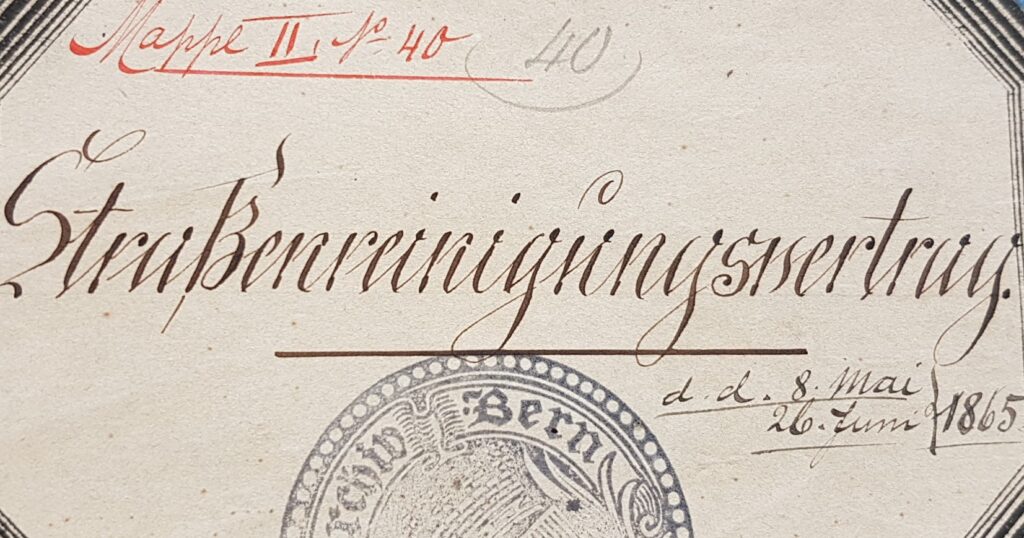 Mappe II, No 40
40
Straßenreinigungsvertrag.
d. d. 8. Mai
26. Juni 1865
Bern